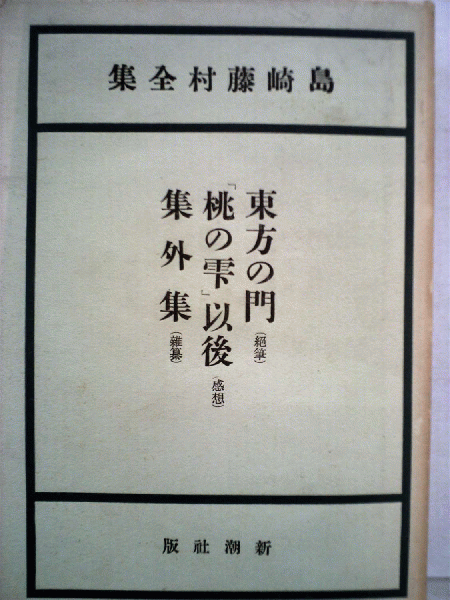 島崎藤村全集
東方の門(絕筆)
「桃の雫」以後(感想)
集外集(雜纂)
新潮社版